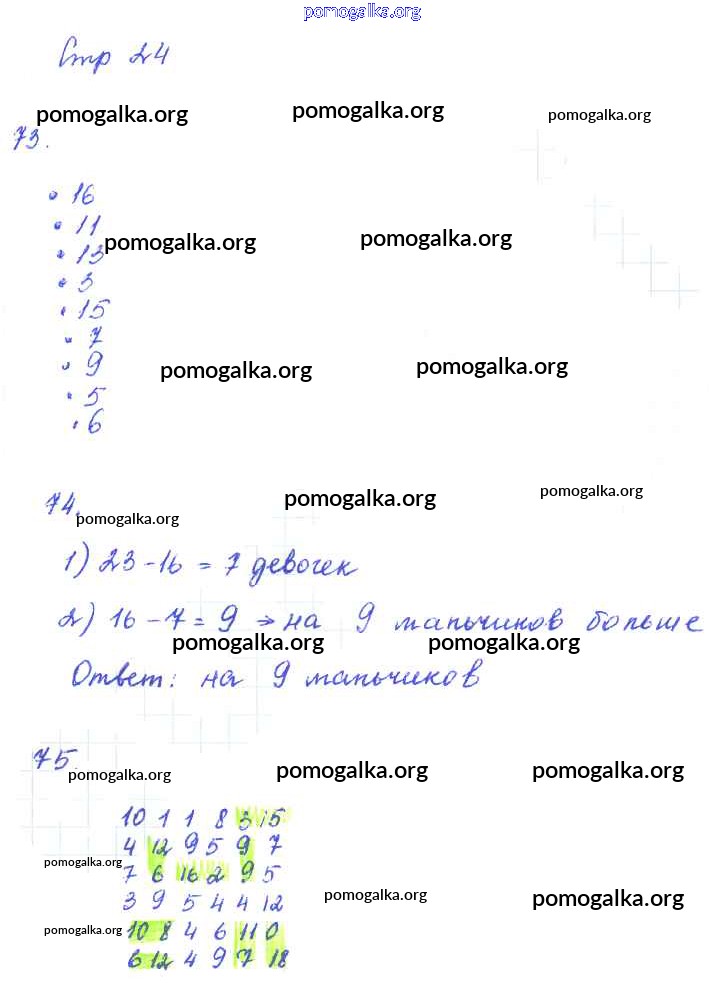 pomogalka.org
Стр 24
pomogalka.org pomogalka.org pomogalka.org
73.
• 16
• 11
• 13 pomogalka.org pomogalka.org
• 3
• 15
• 7
• 9 pomogalka.org pomogalka.org
• 5
• 6
74. pomogalka.org pomogalka.org
pomogalka.org
1) 23 - 16 = 7 девочек
2) 16 - 7 = 9 => на 9 мальчиков больше
pomogalka.org pomogalka.org
Ответ: на 9 мальчиков
75.
pomogalka.org pomogalka.org pomogalka.org
10 1 1 8 3 15
4 12 9 5 9 7
pomogalka.org 7 6 16 2 9 5
3 9 5 4 4 12 pomogalka.org pomogalka.org
pomogalka.org 10 8 4 6 11 0
6 12 4 9 7 18